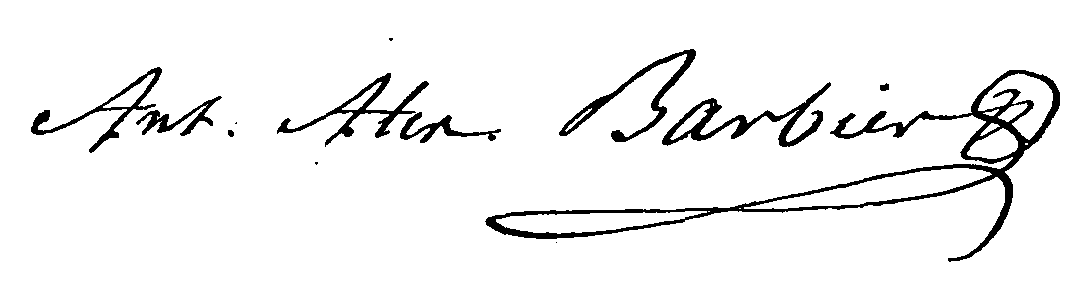 Ant. Alex. Barbier